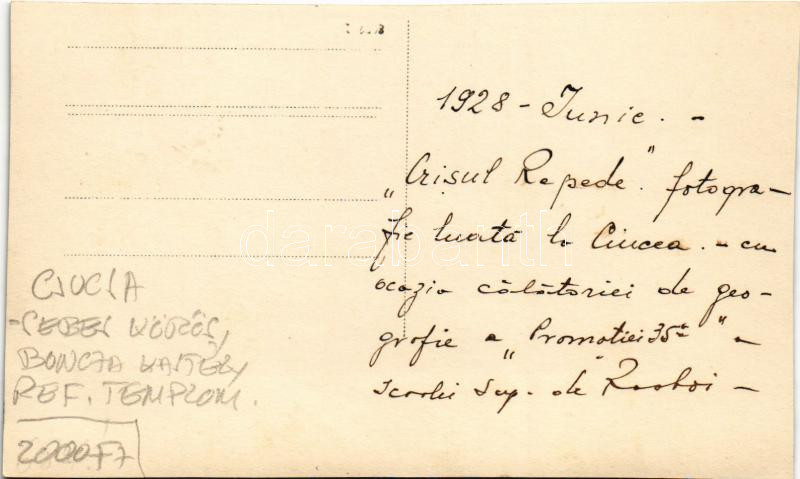 1928 - Iunie. -
„Crisul Repede." fotogra-
fie luată la Ciucea. - cu
ocazia călătoriei de geo-
grafie a „Promotiei 35a" a
Scolii Sup. de Razboi -
CSUCSA
-SEBES KÖRÖS,
BONCZA KASTÉLY
REF. TEMPLOM.
2000 FT
darabanth